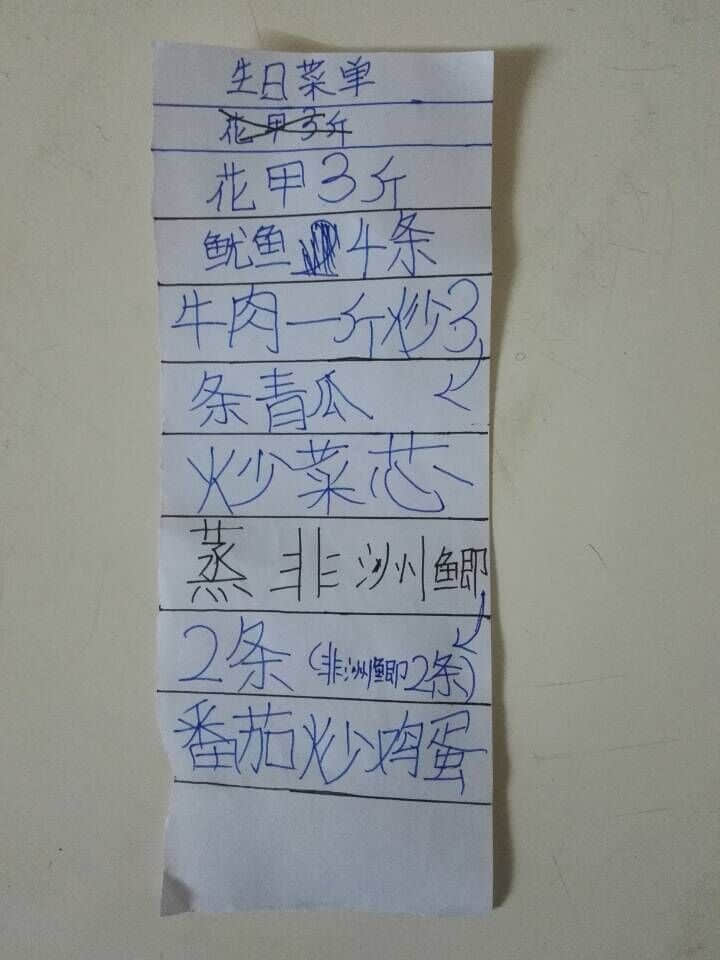 生日菜单
花甲3斤
花甲3斤
鱿鱼 4条
牛肉一斤炒3
条青瓜
炒菜芯
蒸非洲鲫
2条(非洲鲫2条)
番茄炒鸡蛋